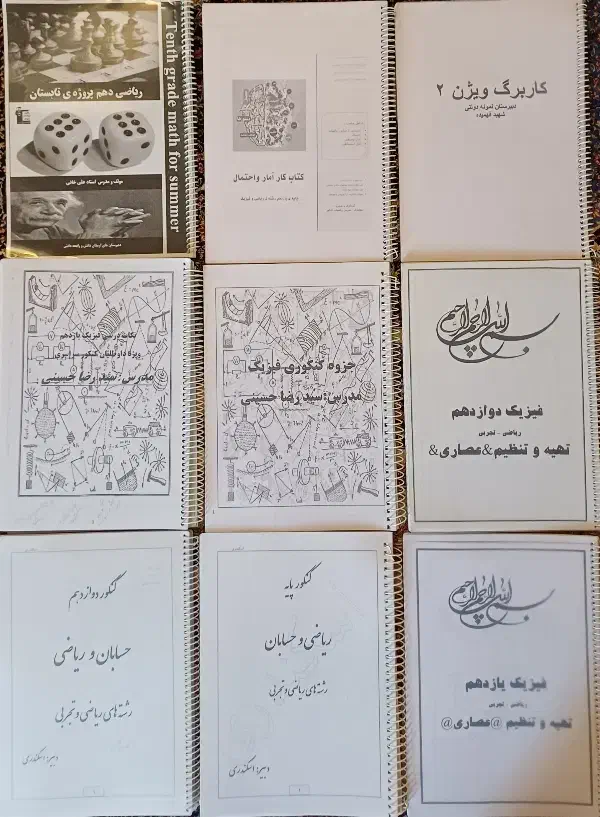 ریاضی دهم پروژه ی تابستان
Tenth grade math for summer
مولف و مدرس استاد علی خانی
کتاب کار آمار و احتمال
کاربرگ ویژن ۲
دبیرستان نمونه دولتی
شهید فهمیده
نکات درسی فیزیک یازدهم
ویژه داوطلبان کنکور سراسری
مدرس: سید رضا حسینی
جزوه کنکوری فیزیک
مدرس: سید رضا حسینی
بسم الله الرحمن الرحیم
فیزیک دوازدهم
ریاضی - تجربی
تهیه و تنظیم&عصاری&
کنکور دوازدهم
حسابان و ریاضی
رشته های ریاضی و تجربی
دبیر: اسکندری
کنکور پایه
ریاضی و حسابان
رشته های ریاضی و تجربی
دبیر: اسکندری
بسم الله الرحمن الرحیم
فیزیک یازدهم
ریاضی - تجربی
تهیه و تنظیم @عصاری@